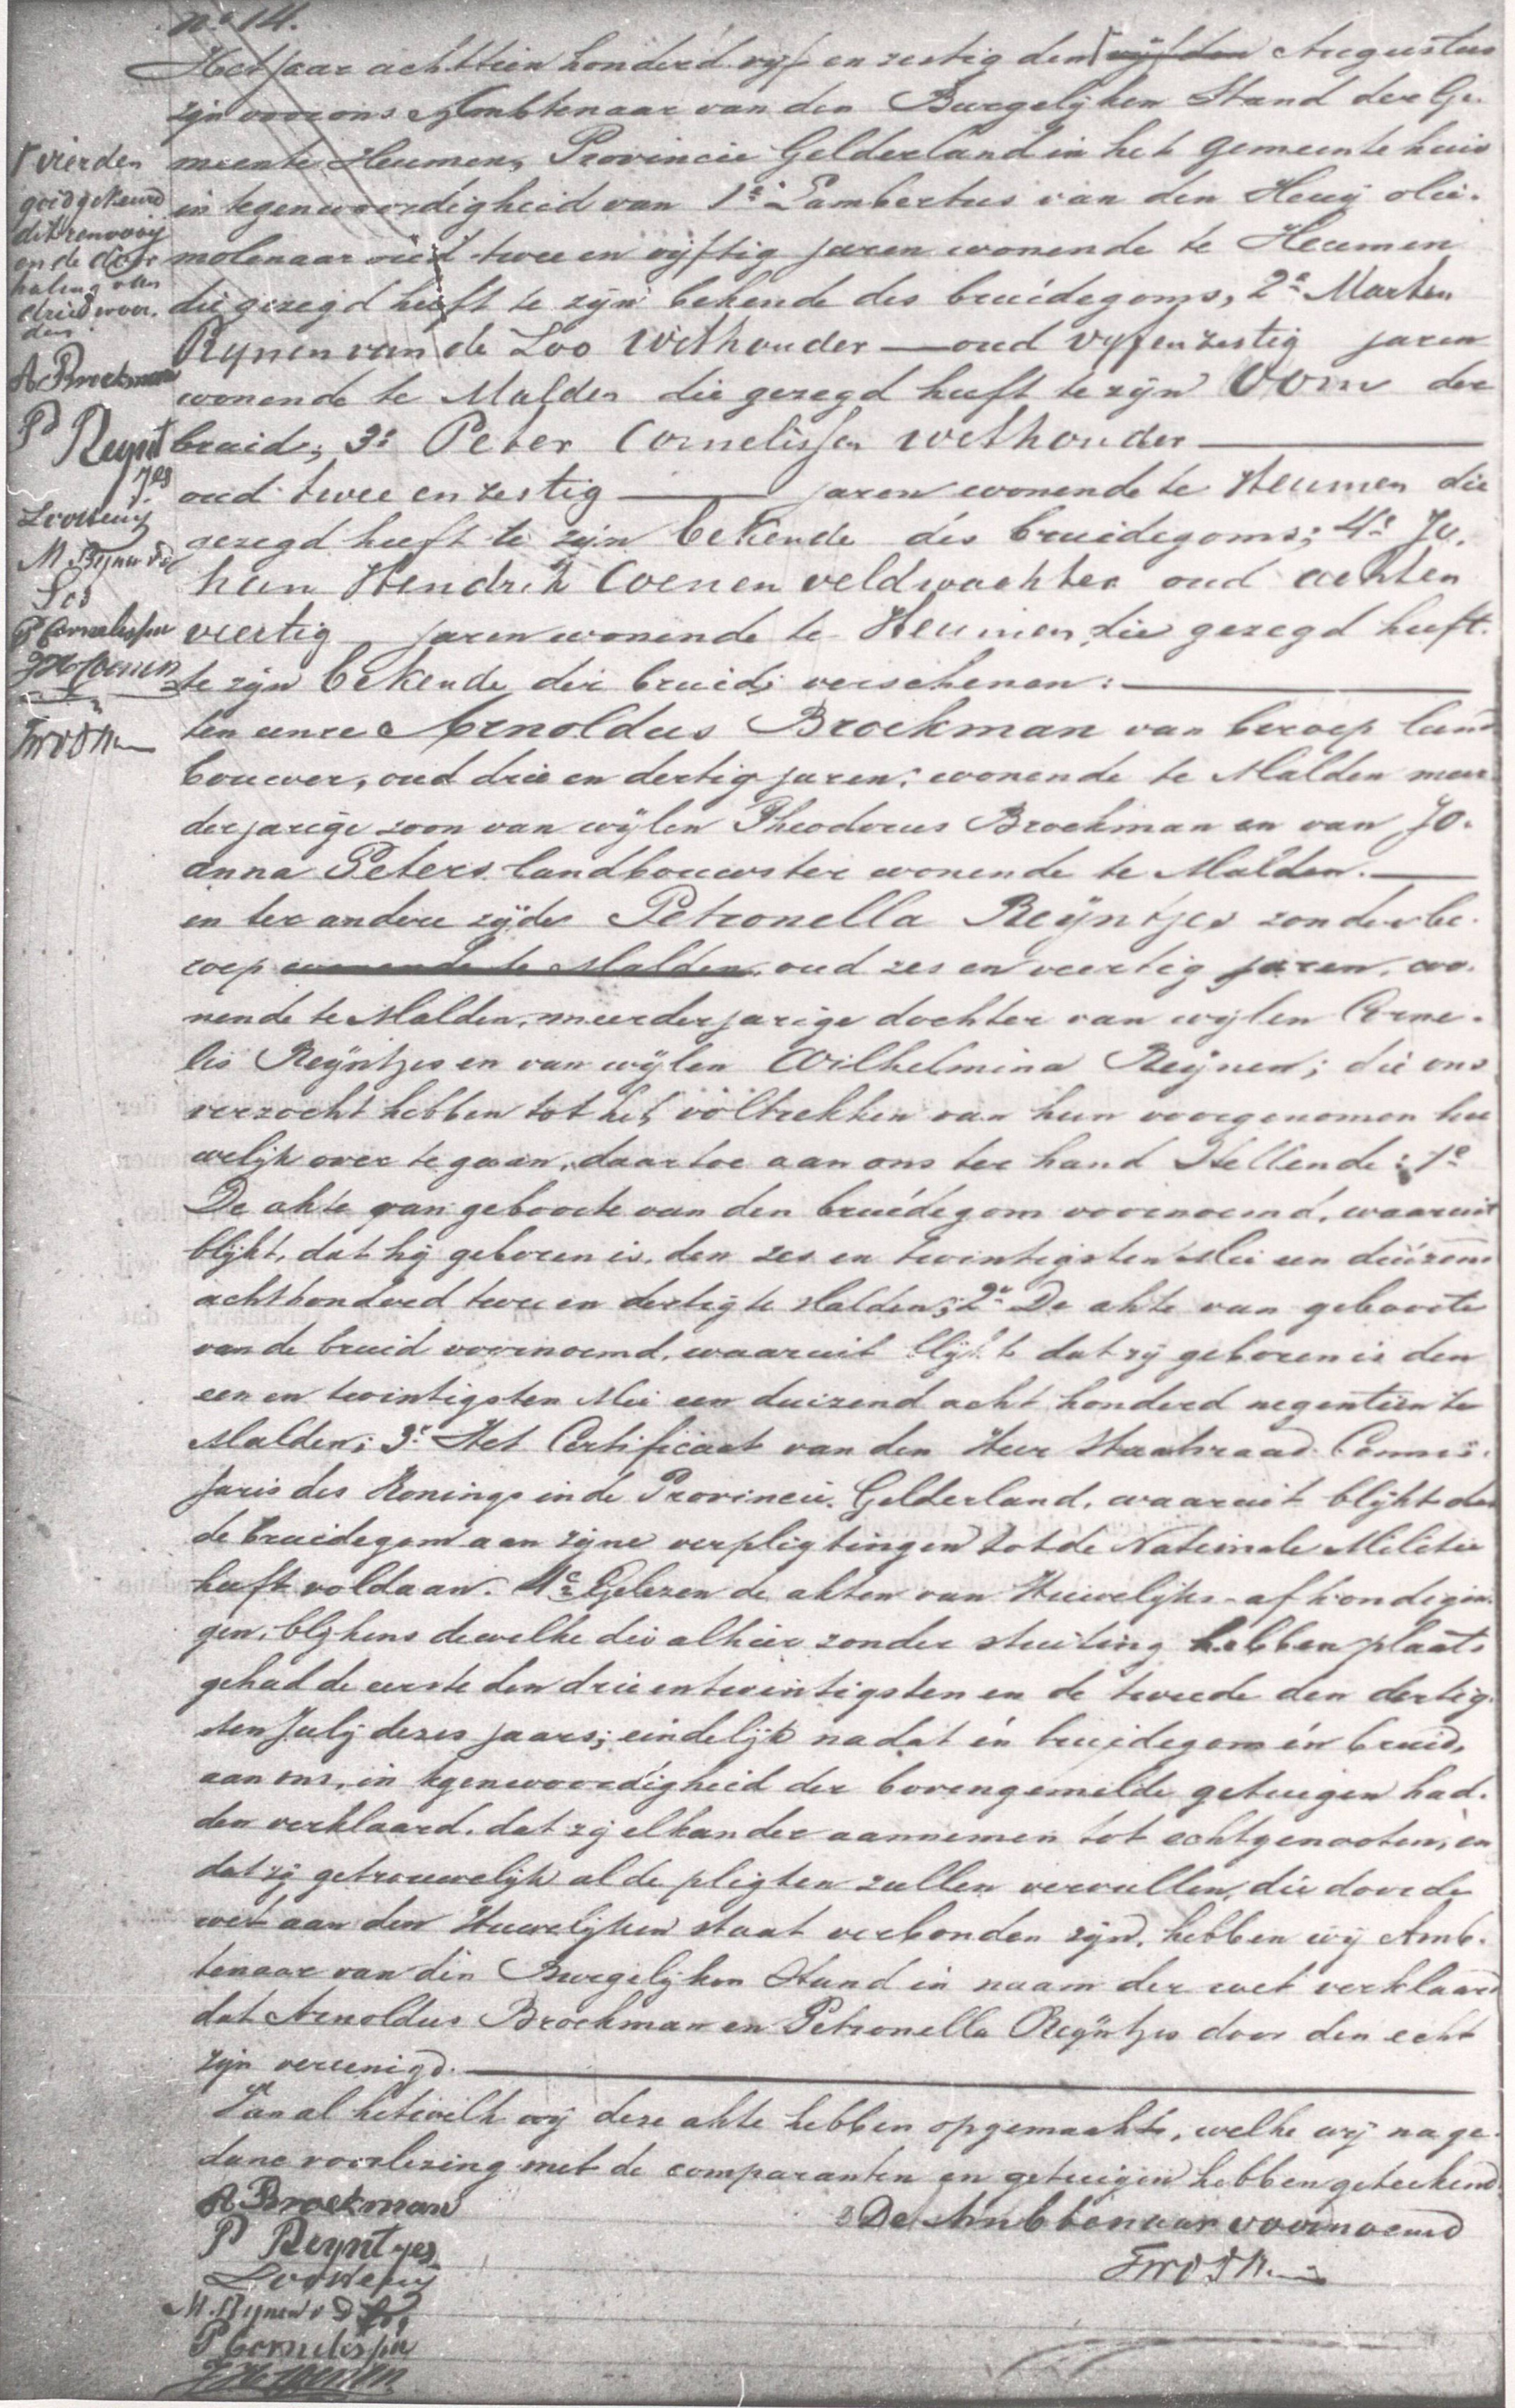 No 14.
Het jaar achttien honderd vyf en zestig den ꟾ vyfden Augustus
zijn voor ons Ambtenaar van den Burgelijken Stand der Ge-
meente Heumen, Provincie Gelderland in het gemeentehuis
in tegenwoordigheid van 1e Lambertus van den Heuij olie-
molenaar oud twee en vijftig jaren wonende te Heumen
die gezegd heeft te zijn bekende des bruidegoms, 2e Marten
Rijnen van de Loo Wethouder — oud vyfenzestig jaren
wonende te Malden die gezegd heeft te zijn Oom der
bruid; 3e Peter Cornelissen wethouder —
oud twee en zestig — jaren wonende te Heumen die
gezegd heeft te zijn bekende des bruidegoms; 4e Jo-
han Hendrik Coenen veldwachter oud achten
veertig jaren wonende te Heumen, die gezegd heeft
te zijn bekende der bruid; verschenen: —
ten eenre Arnoldus Broekman van beroep land
bouwer, oud drie en dertig jaren, wonende te Malden meer
derjarige zoon van wijlen Theodorus Broekman en van Jo-
anna Peters landbouwster wonende te Malden. —
en ter andere zijde Petronella Reijntjes zonder be-
roep wonende te Malden, oud zes en veertig jaren, wo-
nende te Malden, meerderjarige dochter van wijlen Corne-
lis Reijntjes en van wijlen Wilhelmina Reijnen; die ons
verzocht hebben tot het voltrekken van hun voorgenomen hu
welijk over te gaan, daartoe aan ons ter hand stellende: 1e
De akte van geboorte van den bruidegom voornoemd, waaruit
blijkt, dat hij geboren is den zes en twintigsten Mei een duizend
achthonderd twee en dertig te Malden; 2e De akte van geboorte
van de bruid voornoemd, waaruit blijkt dat zij geboren is den
een en twintigsten Mei een duizend acht honderd negentien te
Malden; 3e Het Certificaat van den Heer Staatsraad Commis-
saris des Konings in de Provincie Gelderland, waaruit blijkt dat
de bruidegom aan zijne verpligtingen tot de Nationale Militie
heeft voldaan. 4e Gelezen de akten van Huwelijks-afkondigin-
gen, blijkens dewelke die alhier zonder stuiting hebben plaats
gehad de eerste den drie en twintigsten en de tweede den dertig-
sten Julij dezes jaars; eindelijk nadat én bruidegom én bruid,
aan ons, in tegenwoordigheid der bovengemelde getuigen had-
den verklaard, dat zij elkander aannemen tot echtgenooten, en
dat zij getrouwelijk al de pligten zullen vervullen, die door de
wet aan den Huwelijken staat verbonden zijn, hebben wij Amb-
tenaar van den Burgelijken Stand in naam der wet verklaard
dat Arnoldus Broekman en Petronella Reijntjes door den echt
zijn vereenigd. —
Van al hetwelk wij deze akte hebben opgemaakt, welke wij na ge-
dane voorlezing met de comparanten en getuigen hebben geteekend
De Ambtenaar voornoemd
A Broekman
P Reyntjes
M. Rynen v D Loo
P Cornelissen
J H Coenen
ꟾ vierden
goedgekeurd
dit renvooij
en de door
haling van
drie woor-
den.
A Broekman
P Reynt
jes
M. Rynen v d
Loo
P Cornelissen
J H Coenen